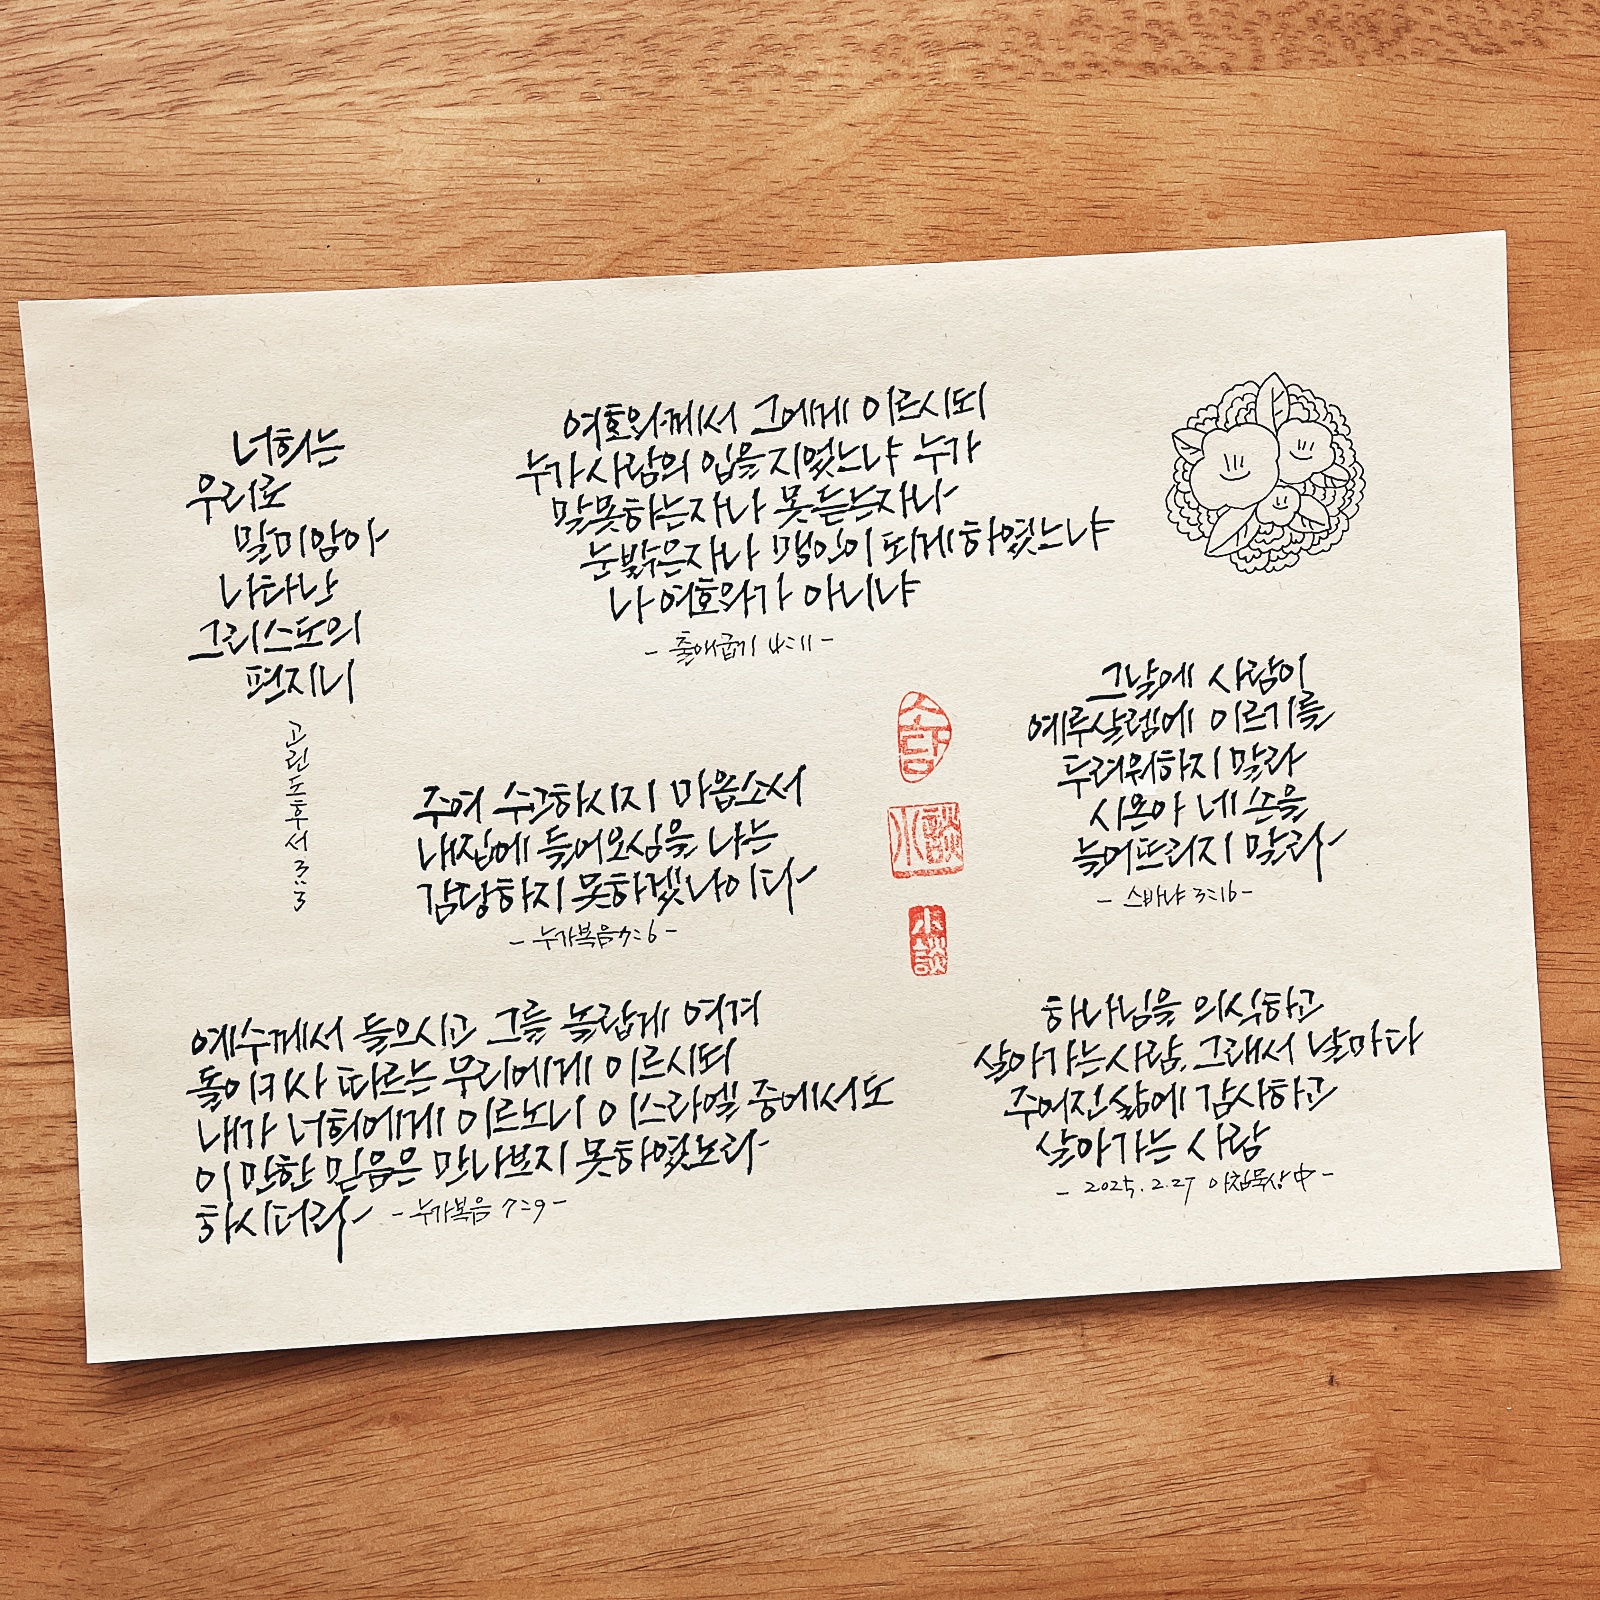 너희는
우리로
말미암아
나타난
그리스도의
편지니
고린도후서 3:3
여호와께서 그에게 이르시되
누가 사람의 입을 지었느냐 누가
말못하는자나 못듣는자나
눈밝은자나 맹인이 되게하였느냐
나 여호와가 아니냐
- 출애굽기 4:11 -
주여 수고하시지 마옵소서
내집에 들어오심을 나는
감당하지 못하겠나이다
- 누가복음 7:6 -
예수께서 들으시고 그를 놀랍게 여겨
돌이키사 따르는 무리에게 이르시되
내가 너희에게 이르노니 이스라엘 중에서도
이만한 믿음은 만나보지 못하였노라
하시더라 - 누가복음 7:9 -
소담
小談
小談
그날에 사람이
예루살렘에 이르기를
두려워하지 말라
시온아 네 손을
늘어뜨리지 말라
- 스바냐 3:16 -
하나님을 의식하고
살아가는 사람, 그래서 날마다
주어진 삶에 감사하고
살아가는 사람
- 2025. 2. 27 아침묵상 中 -